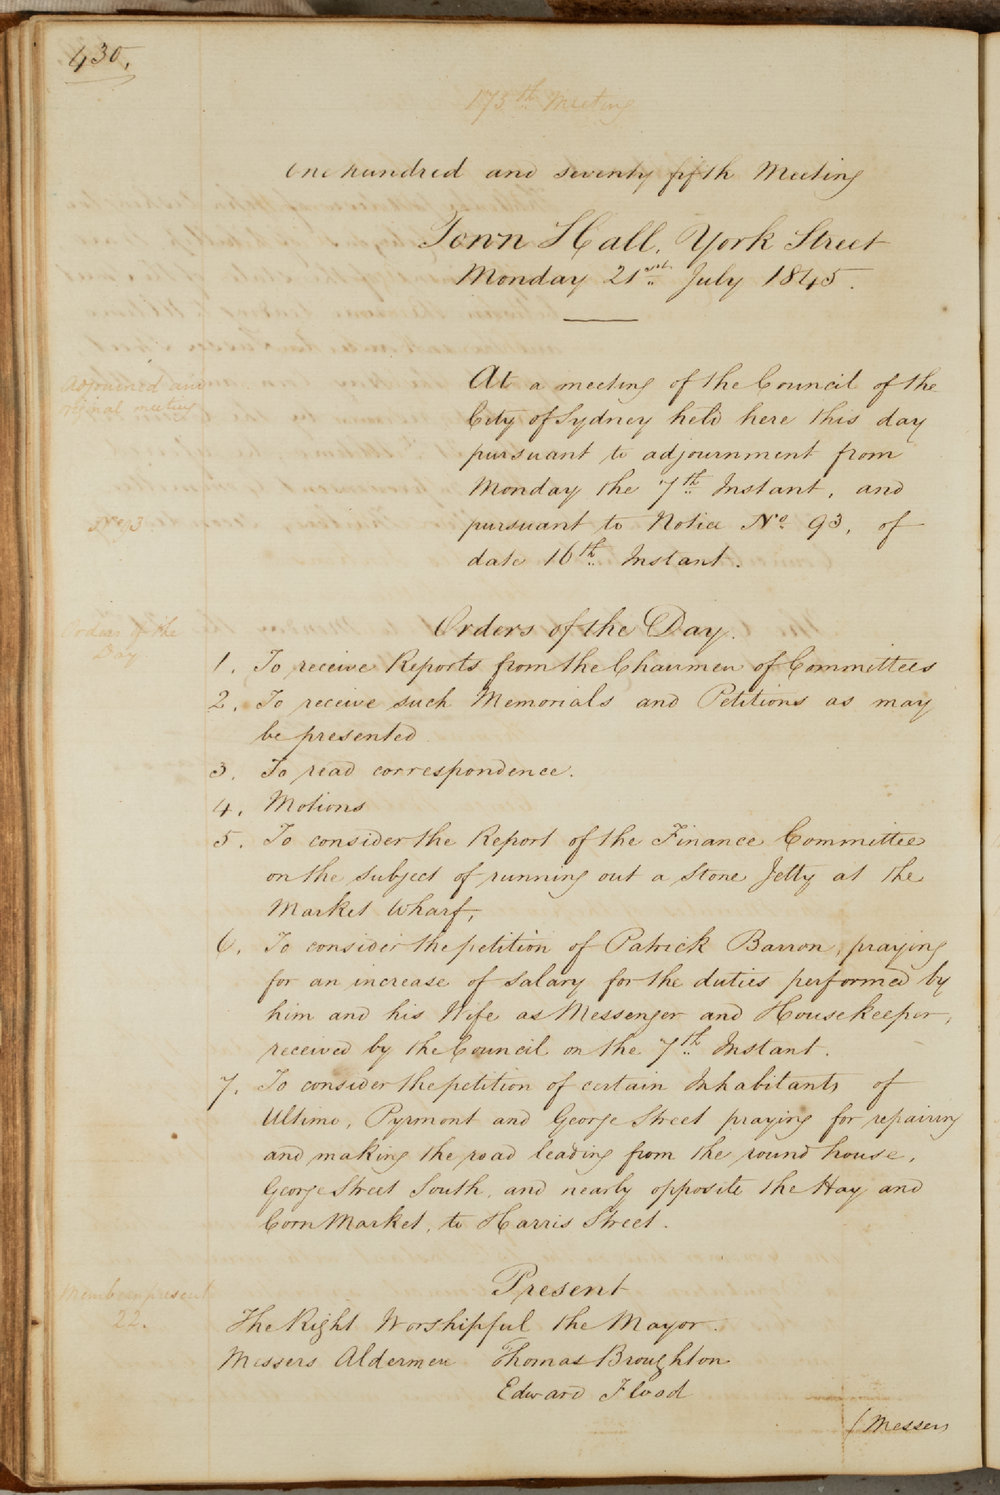 430.
175th Meeting
One hundred and seventy fifth Meeting
Town Hall, York Street
Monday 21st July 1845.
Adjourned and
original meeting
At a meeting of the Council of the
City of Sydney held here this day
pursuant to adjournment from
Monday the 7th Instant, and
No 93
pursuant to Notice No 93, of
date 16th Instant.
Orders of the
Day
Orders of the Day.
1. To receive Reports from the Chairmen of Committees
2. To receive such Memorials and Petitions as may
be presented
3. To read correspondence.
4. Motions
5. To consider the Report of the Finance Committee
on the subject of running out a Stone Jetty at the
Market Wharf,
6. To consider the petition of Patrick Barron, praying
for an increase of salary for the duties performed by
him and his Wife as Messenger and Housekeeper,
received by the Council on the 7th Instant.
7. To consider the petition of certain Inhabitants of
Ultimo, Pyrmont and George Street praying for repairing
and making the road leading from the round house,
George Street South, and nearly opposite the Hay and
Corn Market, to Harris Street.
Members present
22.
Present
The Right Worshipful the Mayor.
Messers Aldermen Thomas Broughton
Edward Flood
(Messers